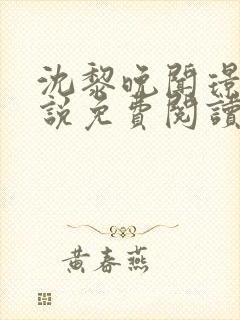 沈黎晚聞璟
說免費閱讀
黃春燕